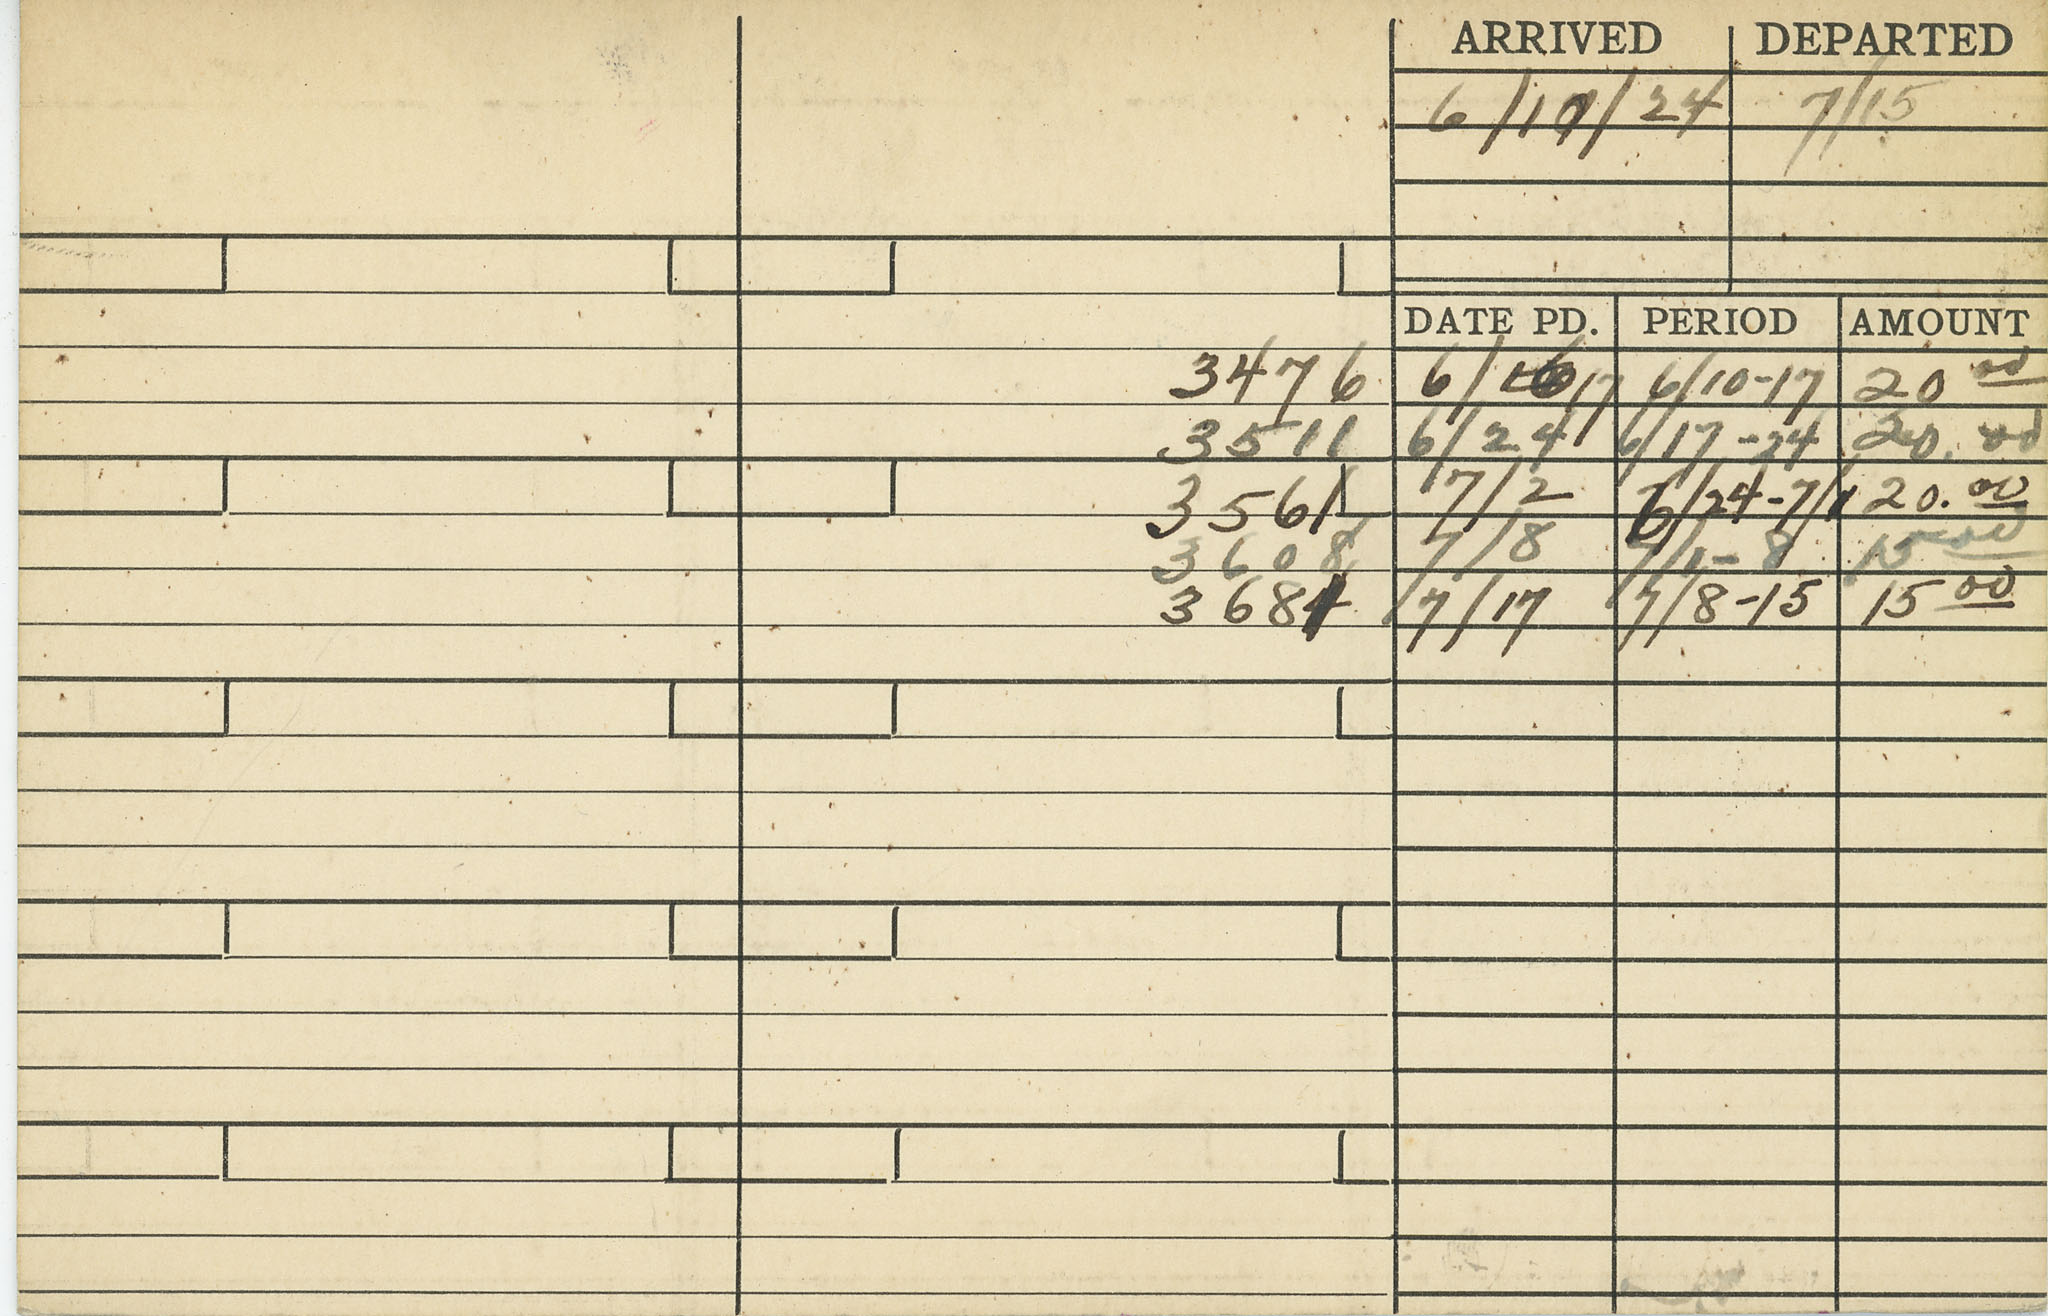 ARRIVED DEPARTED
6/10/24 7/15
DATE PD. PERIOD AMOUNT
3476 6/17 6/10-17 20 00
3511 6/24 6/17-24 20.00
3561 7/2 6/24-7/1 20.00
3608 7/8 7/1-8 15 00
3684 7/17 7/8-15 15 00